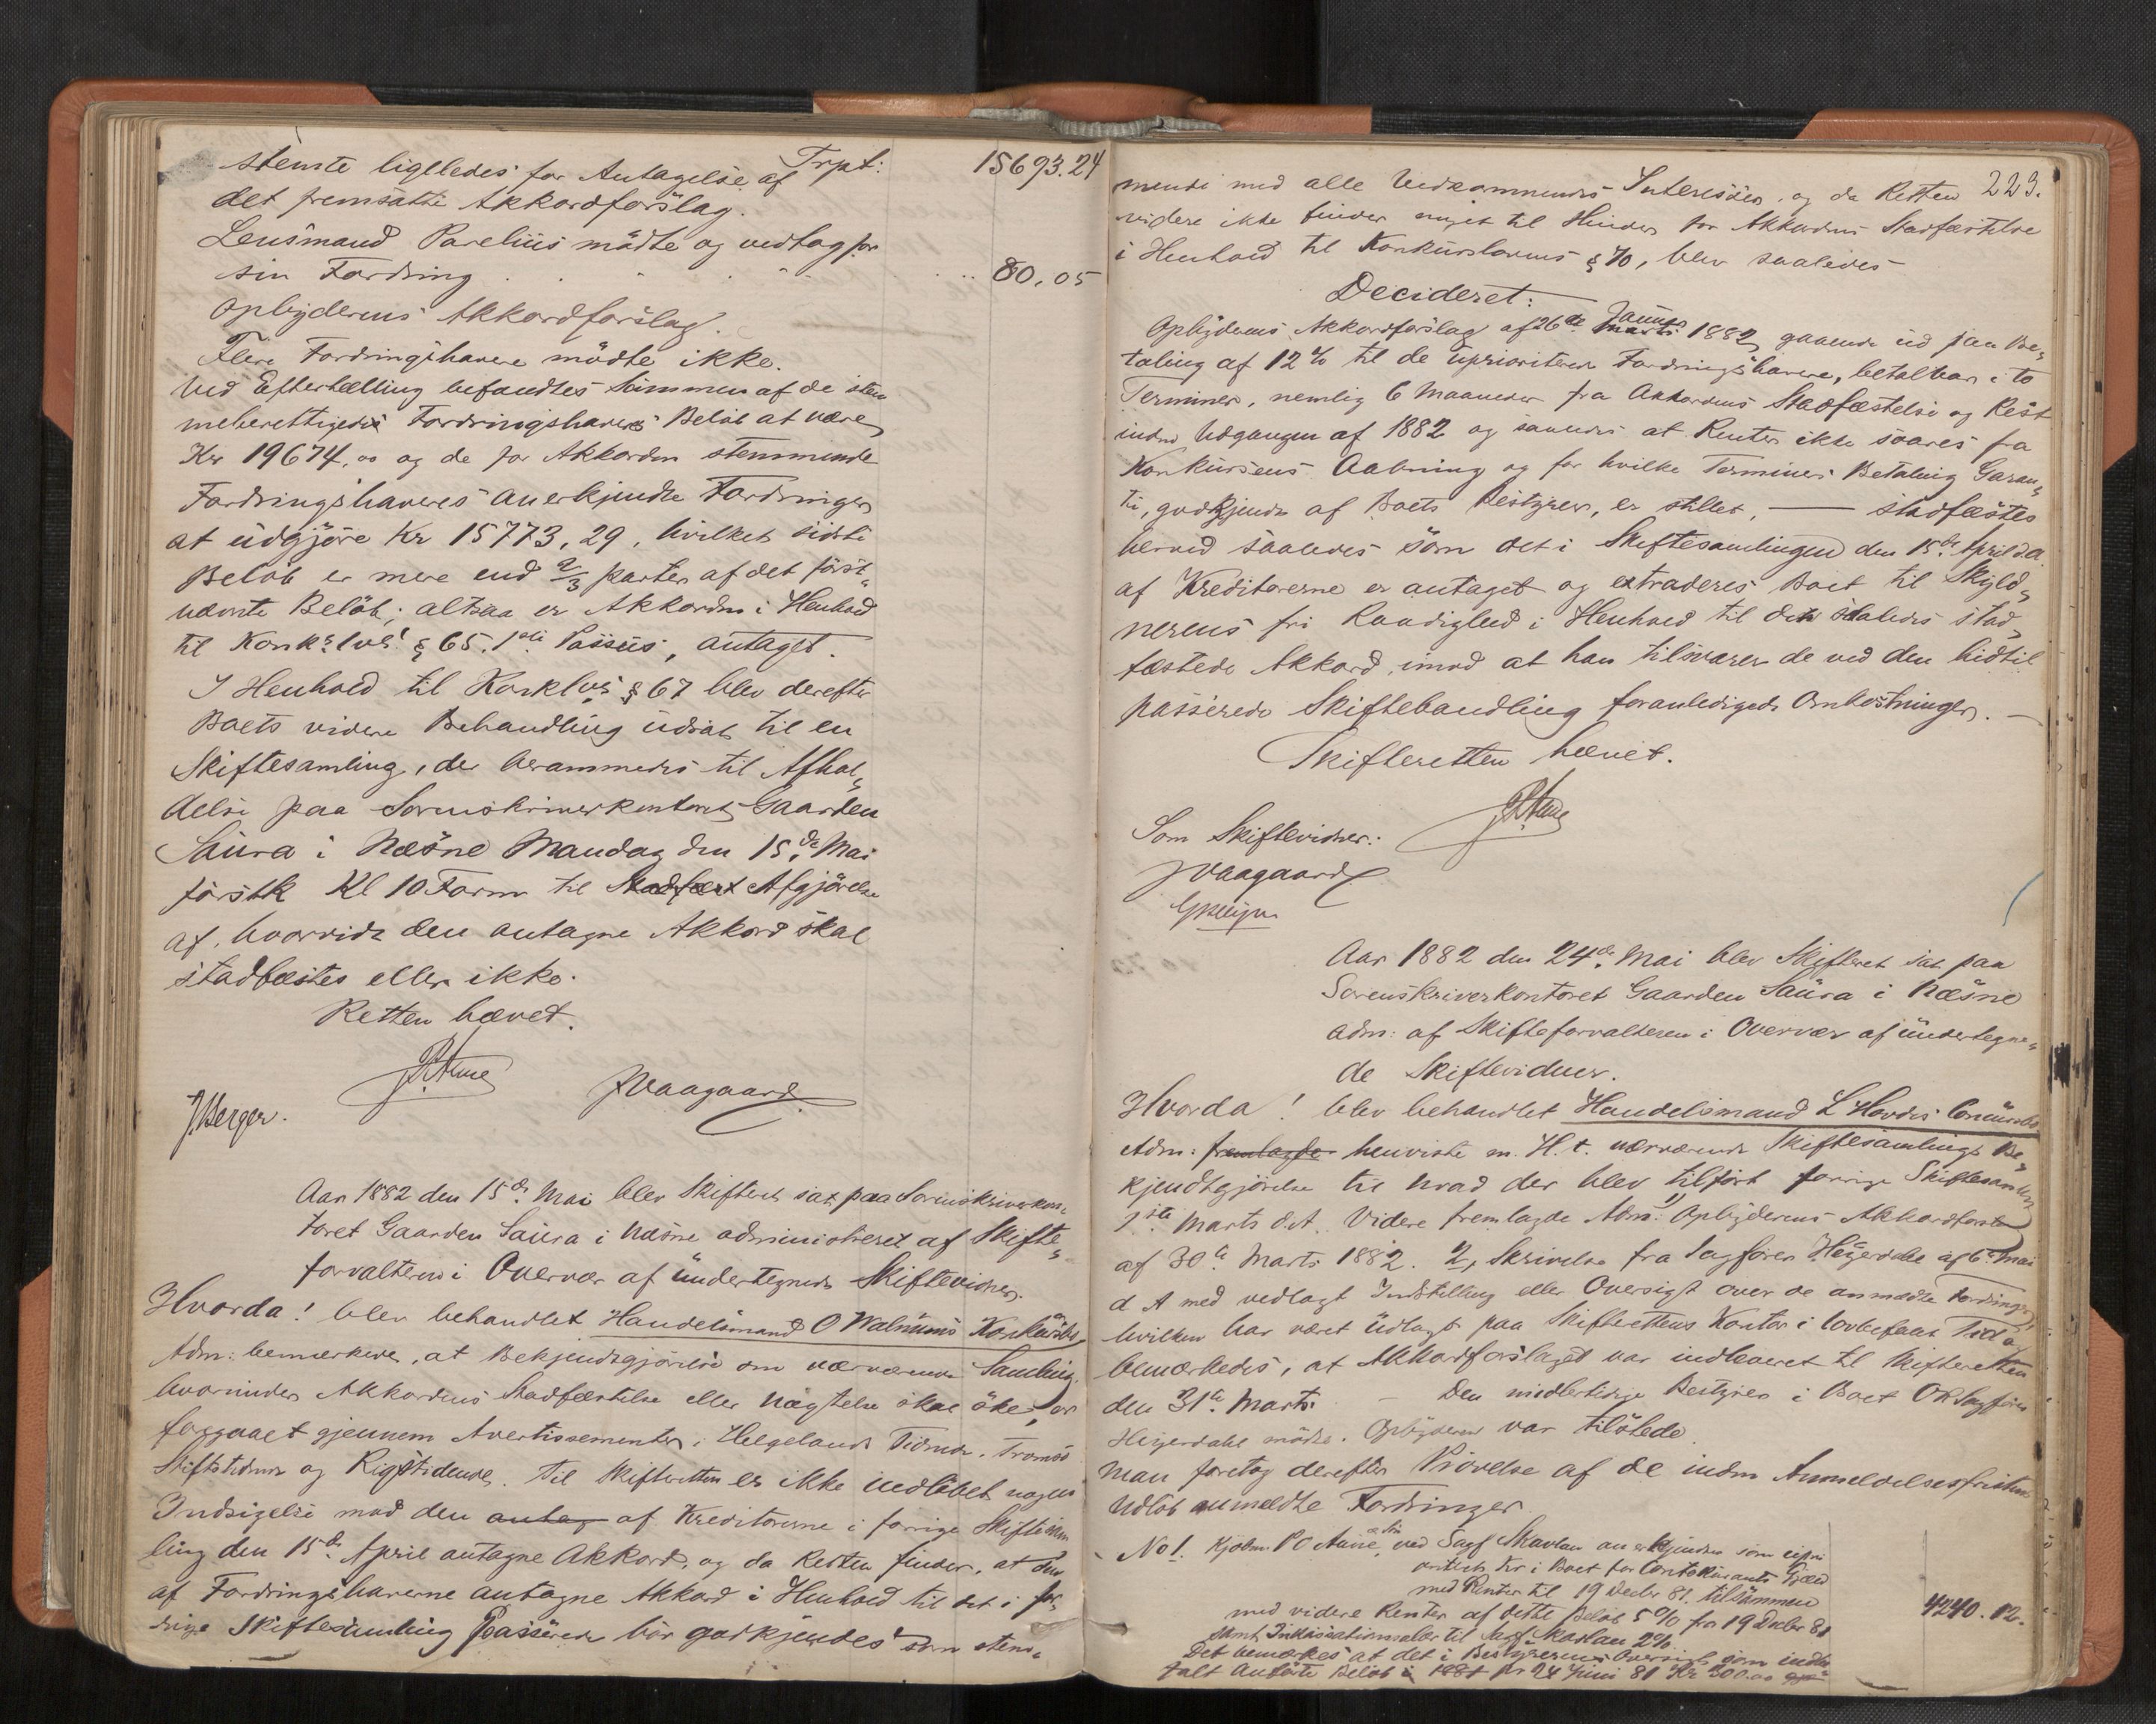 stemte ligeledes for Antagelse af Trpt: 15693.24
det fremsatte Akkordforslag.
Lensmand Parelius mödte og vedtog for
sin Fordring 80.05
Opbyderens Akkordforslag.
Flere Fordringshavere mödte ikke.
Ved Eftertælling befandtes Summen af de stem
meberettigede Fordringshaveres Belöb at være
Kr 19674,00 og de for Akkorden stemmende
Fordringshaveres anerkjendte Fordringer
at udgjöre Kr 15773,29, hvilket sidste
Belöb er mere end 2/3 parter af det först„
nævnte Belöb; altsaa er Akkorden i Henhold
til Konk: lvs! § 65. 1ste Passus, antaget.
I Henhold til Konklvs § 67 blev derefter
Boets videre Behandling udsat til en
Skiftesamling, der berammedes til Afhol„
delse paa Sorenskriverkontoret Gaarden
Saura i Næsne Mandag den 15de Mai
förstk Kl 10 Form til Stadfæst Afgjörelse
af, hvorvidt den antagne Akkord skal
stadfæstes eller ikke.
Retten hævet.
J Vaagaard
J. Berger.
Aar 1882 den 15de Mai blev Skifteret sat paa Sorenskriverkon„
toret Gaarden Saura i Næsne administreret af Skifte„
forvalteren i Overvær af undertegnede Skiftevidner.
Hvorda! blev behandlet Handelsmand O Walnums Konkursbo
Adm: bemærkede, at Bekjendtgjörelse om nærværende Samling,
hvorunder Akkordens Stadfæstelse eller Nægtelse skal ske, er
foregaaet gjennem Avertissementer i Helgelands Tidende, Tromsö
Stiftstidende og Rigstidende. Til Skifteretten er ikke indlöbet nogen
Indsigelse mod den antag af Kreditorerne i forrige Skiftesam
ling den 15de April antagne Akkord, og da Retten finder, at den
af Fordringshaverne antagne Akkord i Henhold til det i for„
rige Skiftesamling Passerede bör godkjendes som stem„
223.
mende med alle Vedkommendes Interesser, og da Retten
videre ikke finder noget til Hinder for Akkordens Stadfæstelse
i Henhold til Konkurslovens § 70, blev saaledes
Decideret:
Opbyderens Akkordforslag af 26de Januar Marts 1882, gaaende ud paa Be„
taling af 12 % til de uprioriterede Fordringshavere, betalbar i to
Terminer, nemlig 6 Maaneder fra Akkordens Stadfæstelse og Rest
inden Udgangen af 1882 og saaledes at Renter ikke svares fra
Konkursens Aabning og for hvilke Terminers Betaling Garan„
ti, godkjendt af Boets Bestyrer, er stillet, — stadfæstes
herved saaledes som det i Skiftesamlingen den 15de April d A
af Kreditorerne er antaget og extraderes Boet til Skyld„
nerens fri Raadighed i Henhold til den saaledes stad„
fæstede Akkord, imod at han tilsvarer de ved den hidtil
passerede Skiftebehandling foranledigede Omkostninger. —
Skifteretten hævet.
Som Skiftevidner:
J Vaagaard
Aar 1882 den 24de Mai blev Skifteret sat paa
Sorenskriverkontoret Gaarden Saura i Næsne
adm: af Skifteforvalteren i Overvær af undertegne„
de Skiftevidner.
Hvorda! blev behandlet Handelsmand L Hovdes Concursbo
Adm: fremlagde henviste m. H. t. nærværende Skiftesamlings Be„
kjendtgjörelse til hvad der blev tilfört forrige Skiftesamling
1ste Marts d.A. Videre fremlagde Adm: 1) Opbyderens Akkordforslag
af 30te Marts 1882. 2, Skrivelse fra Sagförer Heyerdahl af 6te Mai
d A med vedlagt Indstilling eller Oversigt over de anmeldte Fordringer,
hvilken har været udlagt paa Skifterettens Kontor i lovbefalet Tid og
bemærkedes, at Akkordforslaget var indleveret til Skifteretten
den 31te Marts. — Den midlertidige Bestyrer i Boet OR Sagförer
Heyerdahl mödte. Opbyderen var tilstede.
Man foretog derefter Prövelse af de inden Anmeldelsesfristens
Udlöb anmeldte Fordringer.
No 1. Kjöbm. P O Aune &amp; Sön ved Sagf Skavlan anerkjendes som upri
oritert Kr i Boet for Contokurants Gjæld
med Renter til 19 Decbr 81. tilsammen 4240.12.
med videre Renter af dette Belöb 5 % fra 19 Decbr 81
samt Inkassationssalær til Sagf Skavlan 2%.
Det bemærkes at det i Bestyrerens Oversigt som indbe
talt anförte Belöb i 1881 pr 24 Juni 81 Kr 300.00